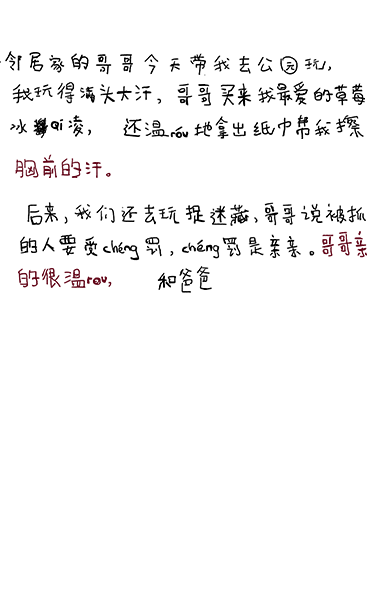 邻居家的哥哥今天带我去公园玩,
我玩得满头大汗,哥哥买来我最爱的草莓
冰qi凌,还温róu地拿出纸巾帮我擦
胸前的汗。
后来,我们还去玩捉迷藏,哥哥说被抓
的人要受chéng罚,chéng罚是亲亲。哥哥亲
的很温rou,和爸爸